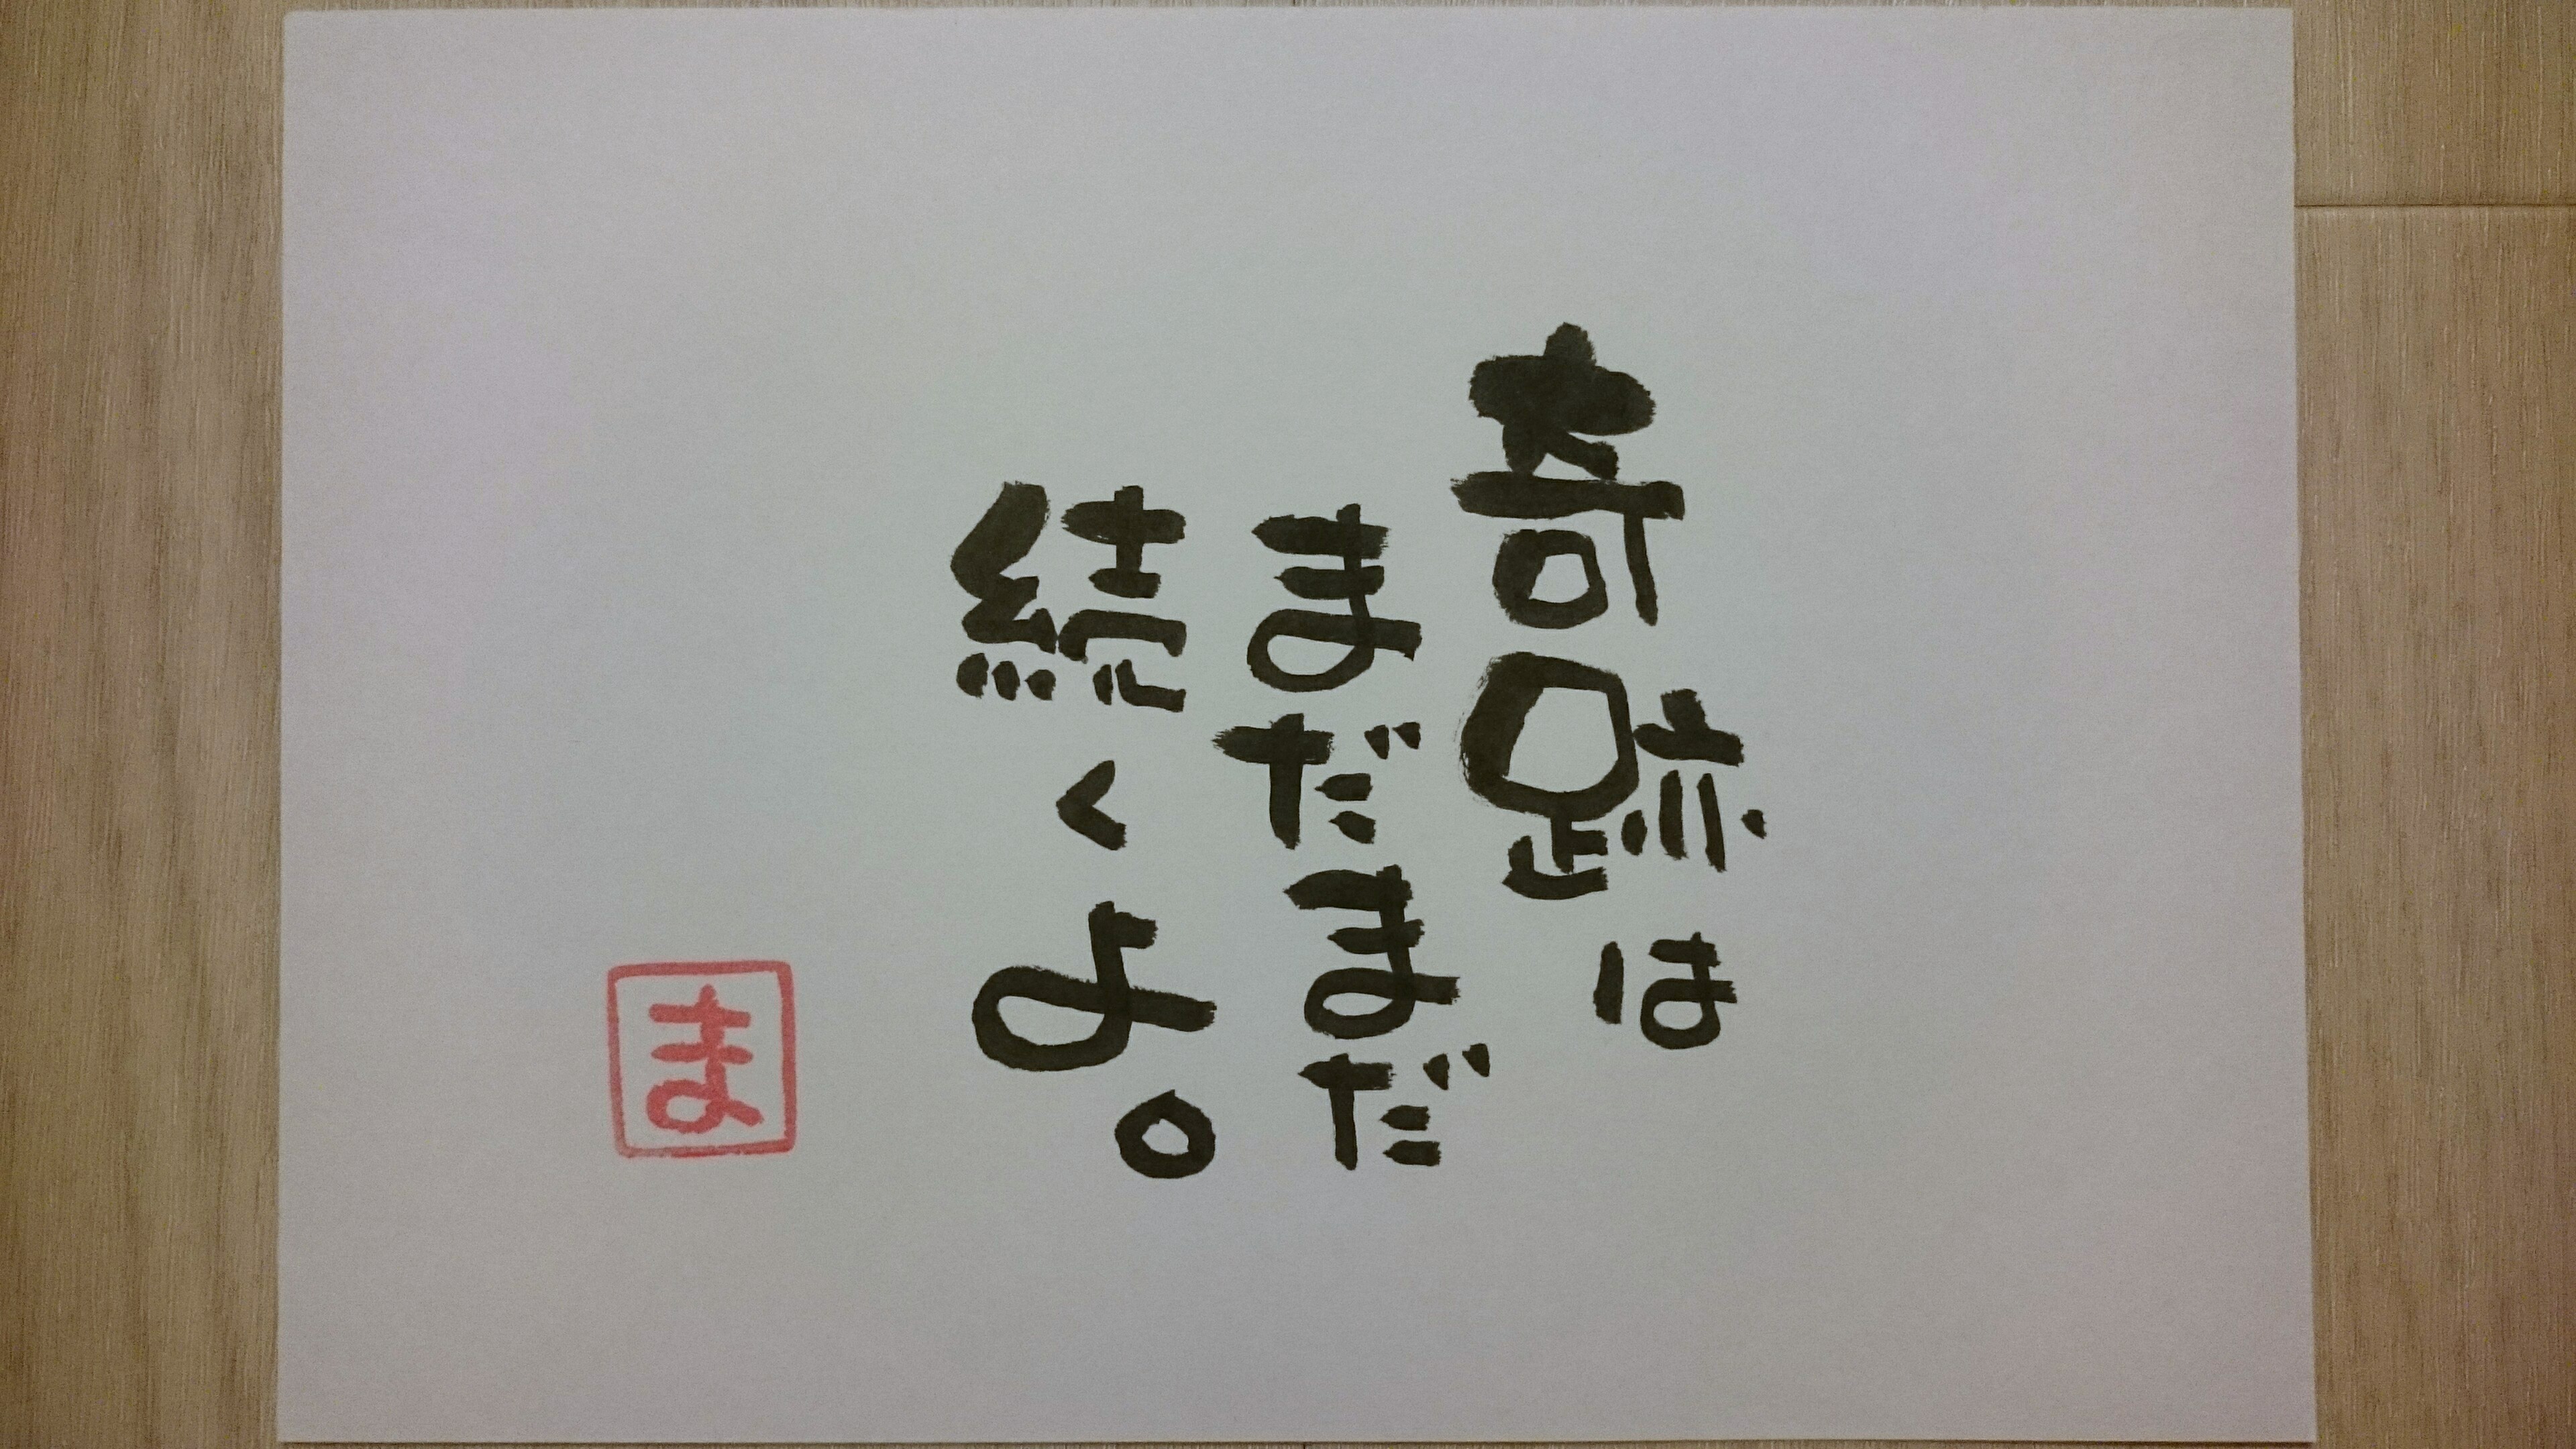 奇跡は
まだまだ
続くよ。
ま